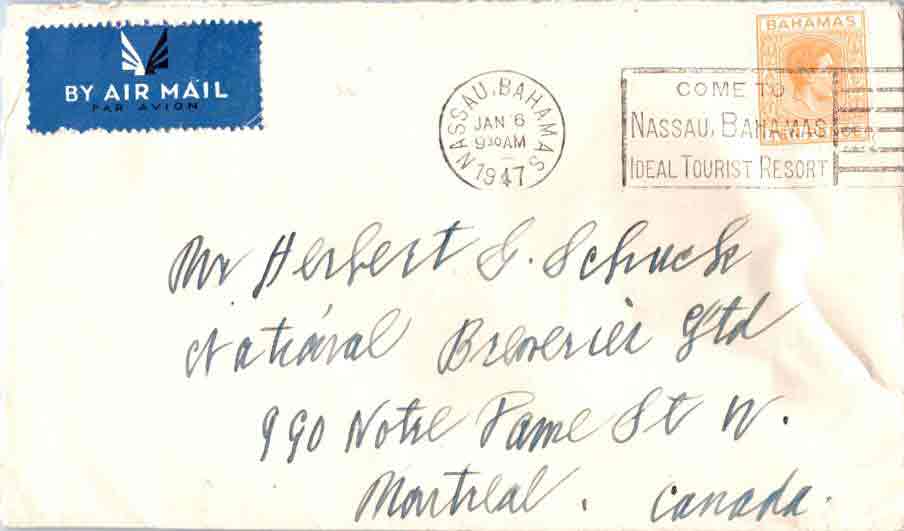 BY AIR MAIL
PAR AVION
NASSAU, BAHAMAS
JAN 6
930AM
1947
COME TO
NASSAU, BAHAMAS
IDEAL TOURIST RESORT
BAHAMAS
Mr Herbert G. Schuck
National Breweries Ltd
990 Notre Dame St W.
Montreal. Canada.